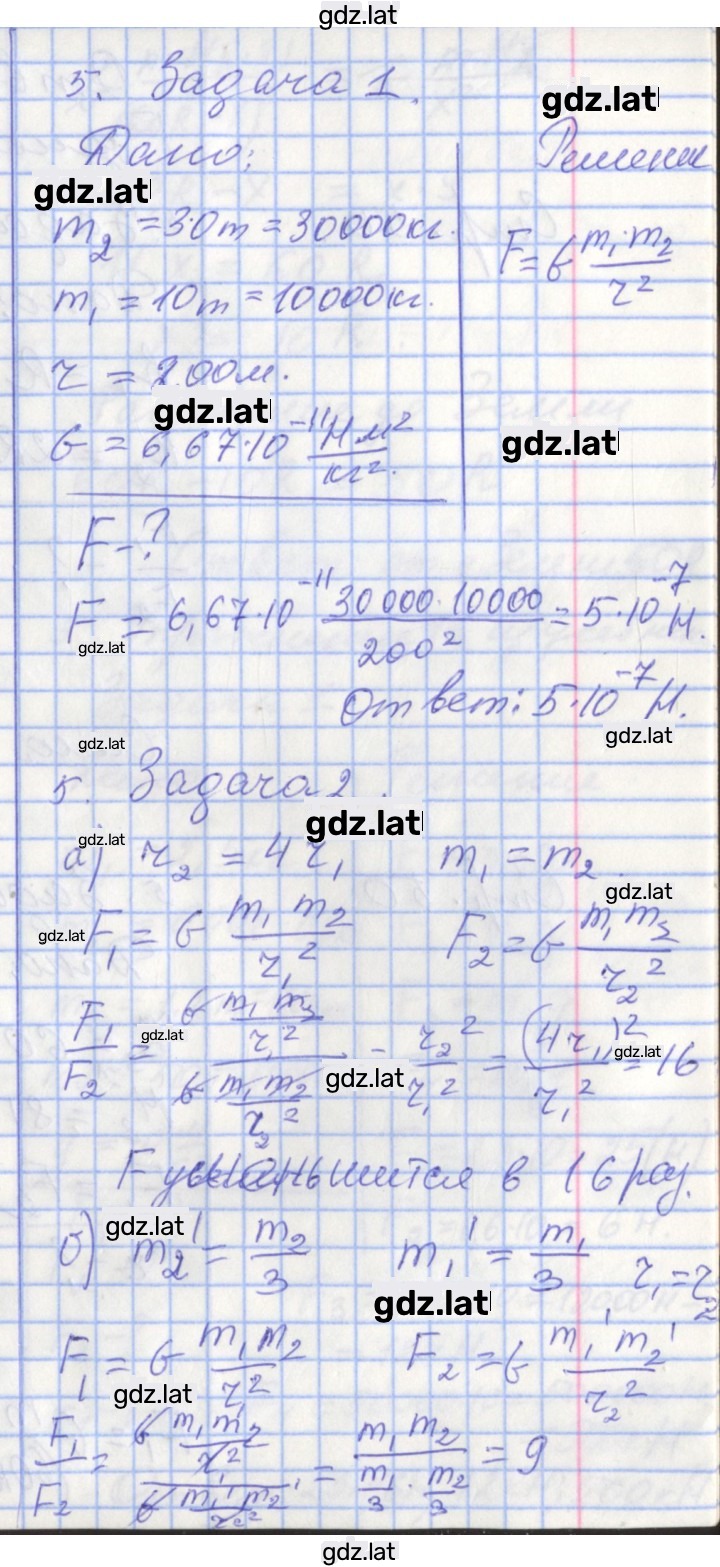 gdz.lat
5. Задача 1.
gdz.lat
Дано: Решение
gdz.lat
m₂ = 30т = 30000кг. F = G m₁·m₂ / r²
m₁ = 10т = 10000кг.
r = 200м.
gdz.lat
G = 6,67·10⁻¹¹ Н м² / кг².
gdz.lat
F-?
F = 6,67·10⁻¹¹ 30000·10000 / 200² = 5·10⁻⁷ Н.
gdz.lat
Ответ: 5·10⁻⁷ Н.
gdz.lat
gdz.lat
5. Задача 2.
gdz.lat
gdz.lat
а) r₂ = 4r₁ m₁ = m₂.
gdz.lat
gdz.lat
F₁ = G m₁ m₂ / r₁² F₂ = G m₁ m₂ / r₂²
gdz.lat
gdz.lat
gdz.lat
F₁ / F₂ = (G m₁ m₂ / r₁²) / (G m₁ m₂ / r₂²) = r₂² / r₁² = (4r₁)² / r₁² = 16
F уменьшится в 16 раз.
gdz.lat
б) m₂' = m₂ / 3 m₁' = m₁ / 3 r₁ = r₂
gdz.lat
F₁ = G m₁ m₂ / r₁² F₂ = G m₁' m₂' / r₂²
gdz.lat
F₁ / F₂ = (G m₁ m₂ / r²) / (G m₁' m₂' / r²) = m₁ m₂ / (m₁ / 3 · m₂ / 3) = 9
gdz.lat